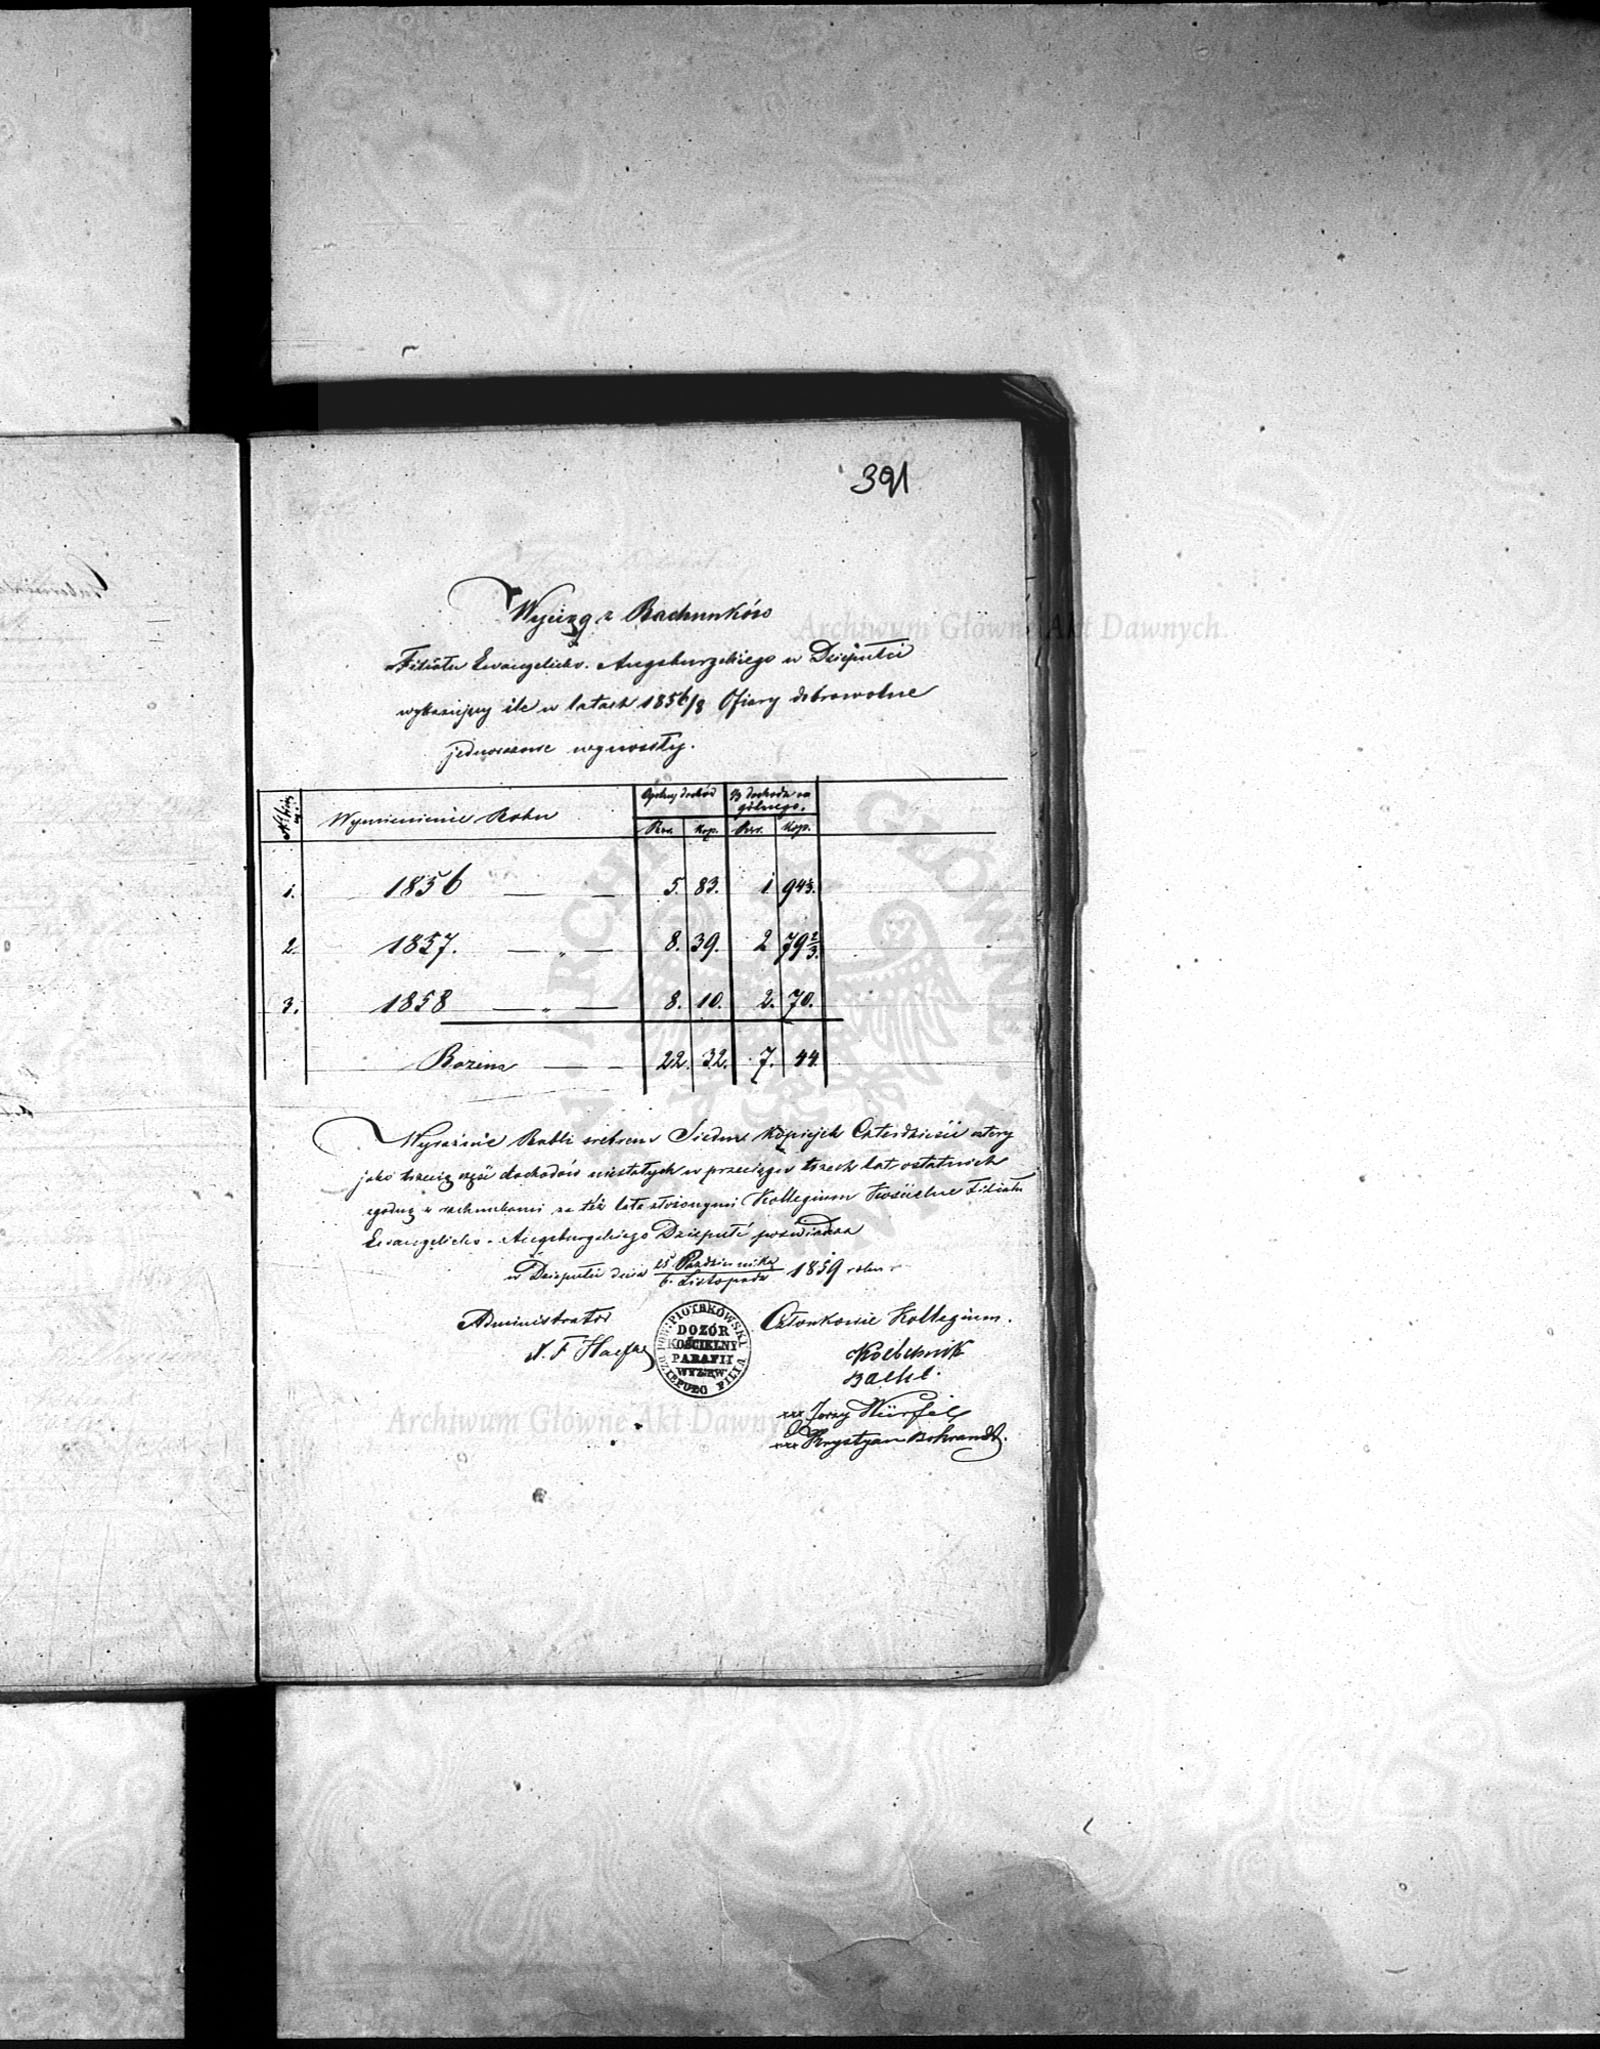 391
Wyciąg z Rachunków
Filiału Ewangelicko-Augsburgskiego w Dziepułci
wykazujący ile w latach 1856/8 Ofiary dobrowolne
jednorazowe wynosiły.
Wymienienie Roku
Ogólny dochód
⅓ dochodu ogólnego.
Rsr. Kop. Rsr. Kop.
1. 1856 — — 5. 83. 1 94⅓.
2. 1857. — „ — 8. 39. 2 79⅔.
3. 1858 — „ — 8. 10. 2. 70.
Razem — — 22. 32. 7. 44.
Wyraźnie Rubli srebrem Siedm Kopiejek Czterdzieści cztery
jako trzecią część dochodów niestałych w przeciągu trzech lat ostatnich
zgodną z rachunkami za też lata złożonymi Kollegium Kościelne Filiału
Ewangelicko-Augsburgskiego Dziepułć poświadcza
w Dziepułci dnia 25 Października / 6. Listopada 1859 roku
Administrator
Członkowie Kollegium.
POW: PIOTRKOWSKI
DOZÓR
KOŚCIELNY
PARAFII
WYZ: EW:
DZIEPUŁĆ FILIA
Bachl.
xxx Jerzy Würfel
xxx Krystyan Bohrandt.
Archiwum Główne Akt Dawnych
Archiwum Główne Akt Dawnych
ARCHIWUM GŁÓWNE AKT DAWNYCH